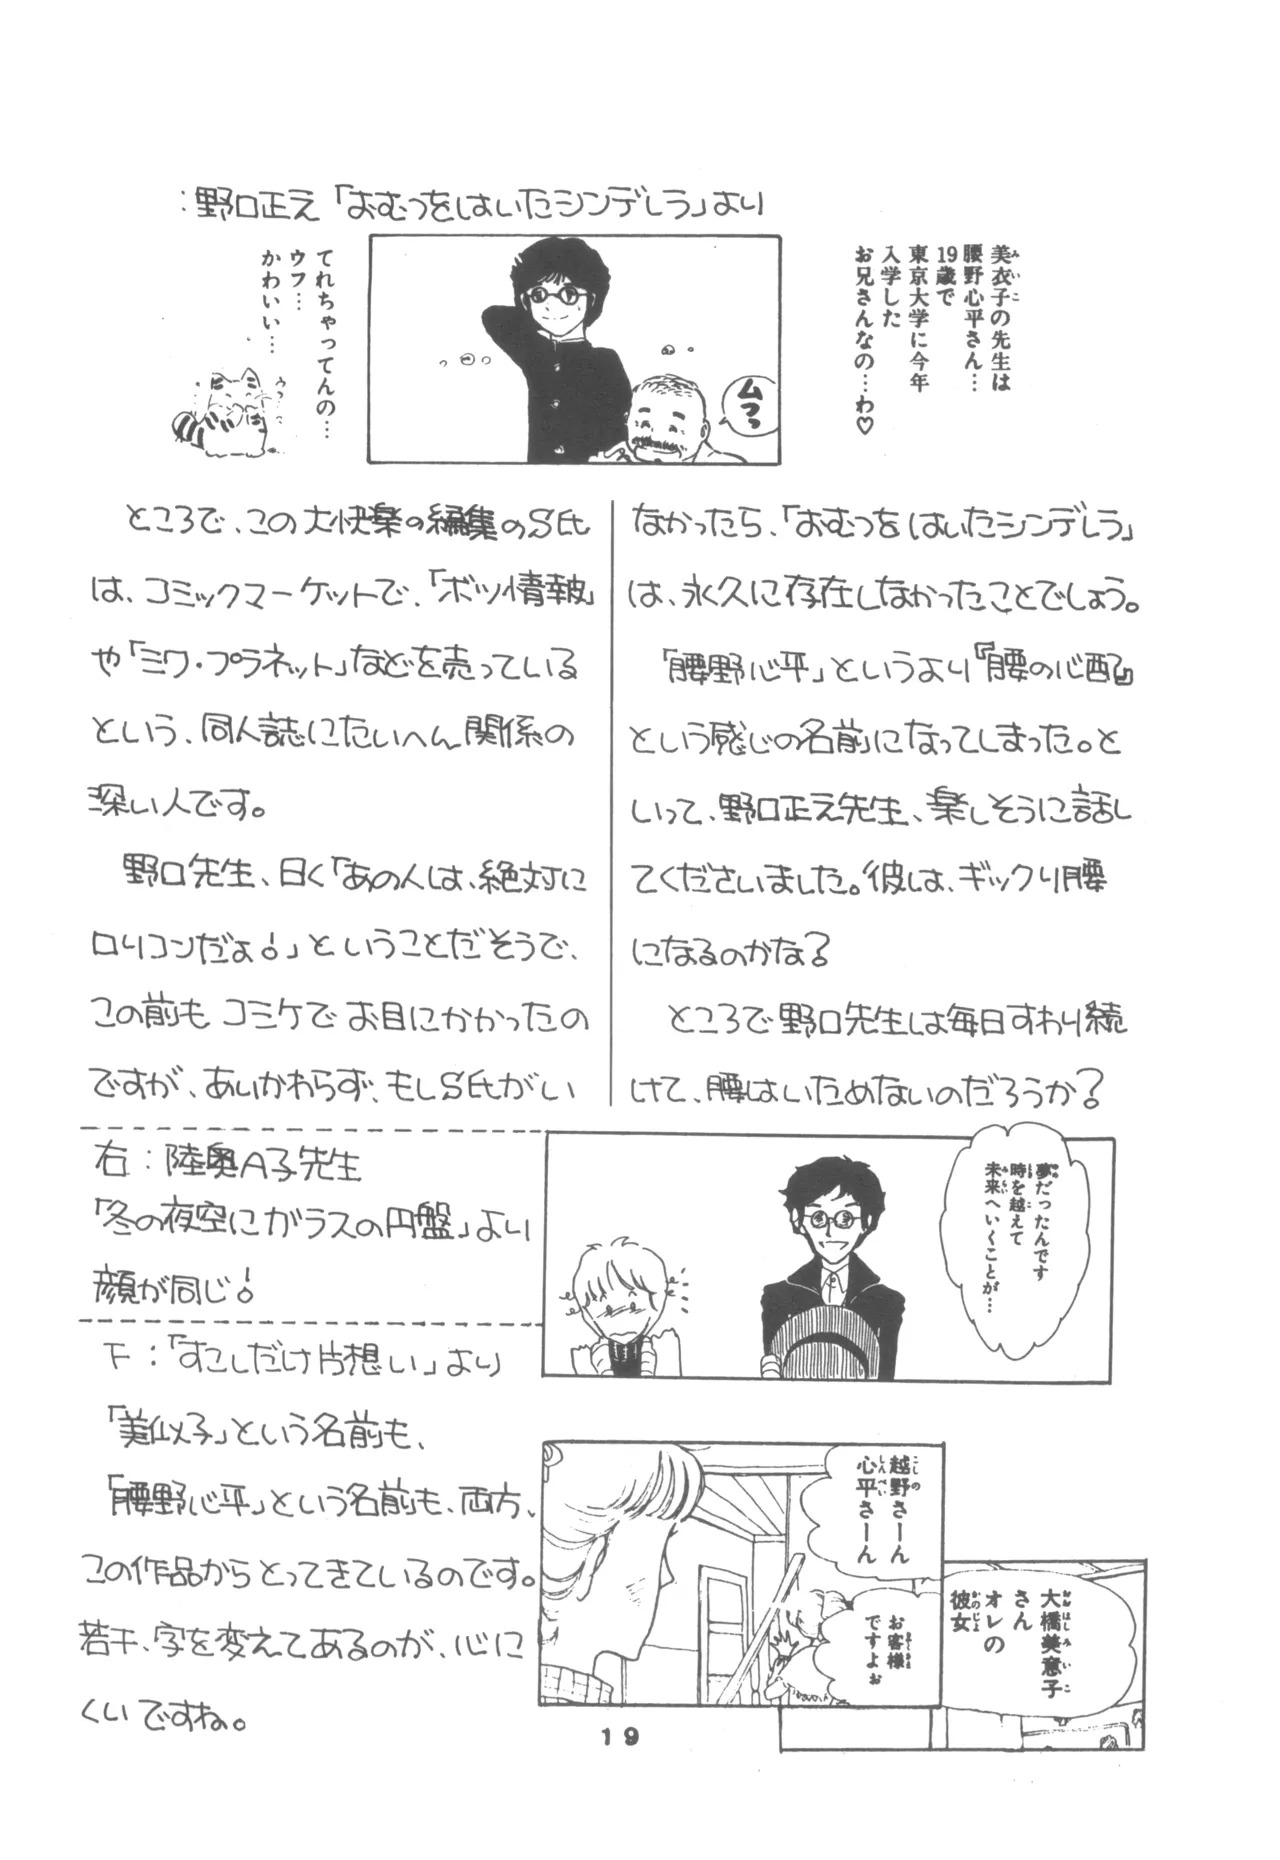 ：野口正之「おむつをはいたシンデレラ」より
美衣子の先生は
腰野心平さん…
19歳で
東京大学に今年
入学した
お兄さんなの…わ♡
ムフっ
てれちゃってんの…
ウフ…
かわいい…
ところで、この大快楽の編集のS氏
は、コミックマーケットで、「ボツ情報」
や「ミワ・プラネット」などを売っている
という、同人誌にたいへん関係の
深い人です。
野口先生、曰く「あの人は、絶対に
ロリコンだよ!」ということだそうで、
この前も、コミケでお目にかかったの
ですが、あいかわらず、もしS氏がい
なかったら、「おむつをはいたシンデレラ」
は、永久に存在しなかったことでしょう。
「腰野心平」というより『腰の心配』
という感じの名前になってしまった。と
いって、野口正之先生、楽しそうに話し
てくださいました。彼は、ギックリ腰
になるのかな?
ところで野口先生は毎日すわり続
けて、腰はいためないのだろうか?
右：陸奥A子先生
「冬の夜空にガラスの円盤」より
顔が同じ!
夢だったんです
時を越えて
未来へいくことが…
下：「すこしだけ片想い」より
「美似子」という名前も、
「腰野心平」という名前も、両方、
この作品からとってきているのです。
若干、字を変えてあるのが、心に
くいですね。
越野さーん
心平さーん
お客様
ですよぉ
大橋美意子
さん
オレの
彼女
19